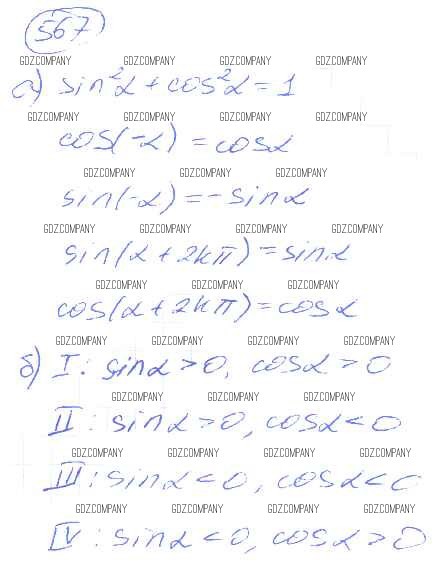 567
GDZ.COMPANY GDZ.COMPANY GDZ.COMPANY GDZ.COMPANY
а) sin²α + cos²α = 1
GDZ.COMPANY GDZ.COMPANY GDZ.COMPANY GDZ.COMPANY
cos(-α) = cosα
GDZ.COMPANY GDZ.COMPANY GDZ.COMPANY
sin(-α) = -sinα
GDZ.COMPANY GDZ.COMPANY GDZ.COMPANY GDZ.COMPANY
sin(α + 2kπ) = sinα
GDZ.COMPANY GDZ.COMPANY GDZ.COMPANY
cos(α + 2kπ) = cosα
GDZ.COMPANY GDZ.COMPANY GDZ.COMPANY GDZ.COMPANY
б) I: sinα > 0, cosα > 0
GDZ.COMPANY GDZ.COMPANY GDZ.COMPANY
II: sinα > 0, cosα < 0
GDZ.COMPANY GDZ.COMPANY GDZ.COMPANY GDZ.COMPANY
III: sinα < 0, cosα < 0
GDZ.COMPANY GDZ.COMPANY GDZ.COMPANY GDZ.COMPANY
IV: sinα < 0, cosα > 0